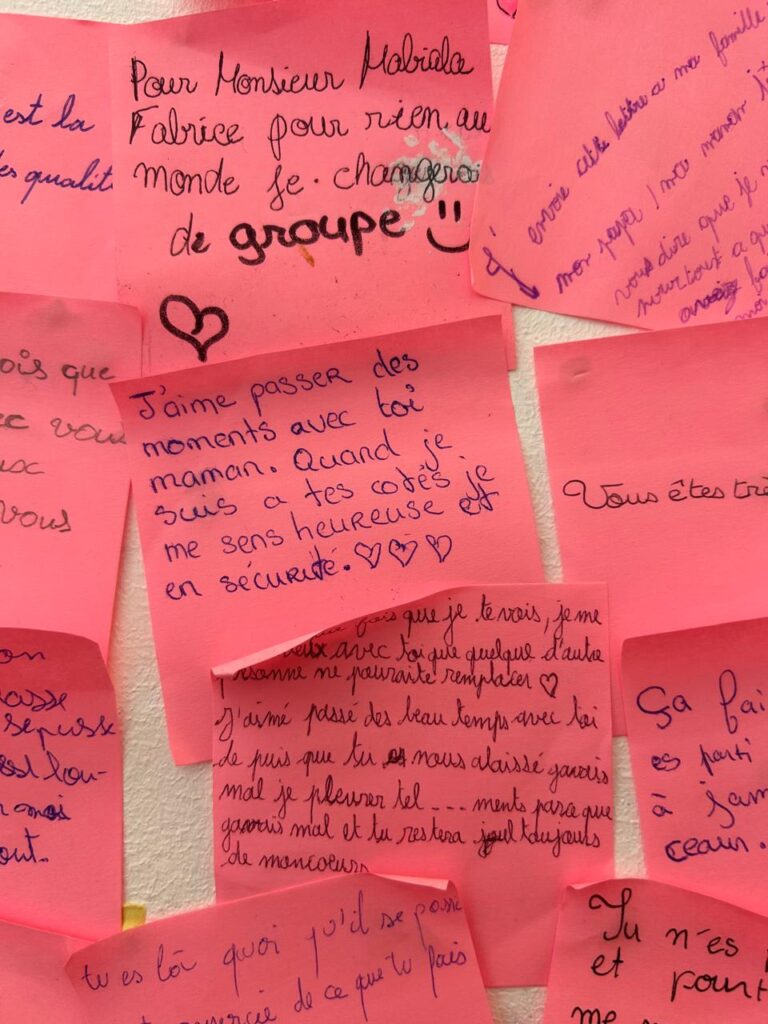 est la
es qualit
Pour Monsieur Mabiala
Fabrice pour rien au
monde je changerais
de groupe
J'envoie cette lettre a ma famille
mon papa / ma maman
vous dire que je
pourtout
ois que
ec vous
ux
vous
J'aime passer des
moments avec toi
maman. Quand je
suis a tes cotés je
me sens heureuse et
en sécurité.
Vous êtes trè
fois que je te vois, je me
eux avec toi que quelque d'autre
personne ne pouraite remplacer
J'aimé passé des beau temps avec toi
de puis que tu es nous alaissé javais
mal je pleurer tel ... ments parse que
gavais mal et tu restera toujours
de moncoeurs
on
passe
se passe
est lou-
r moi
out.
Ça fai
es parti
à jam
ceaur.
tu es là quoi qu'il se passe
ercie de ce que tu fais
Tu n'es
et pourt
me